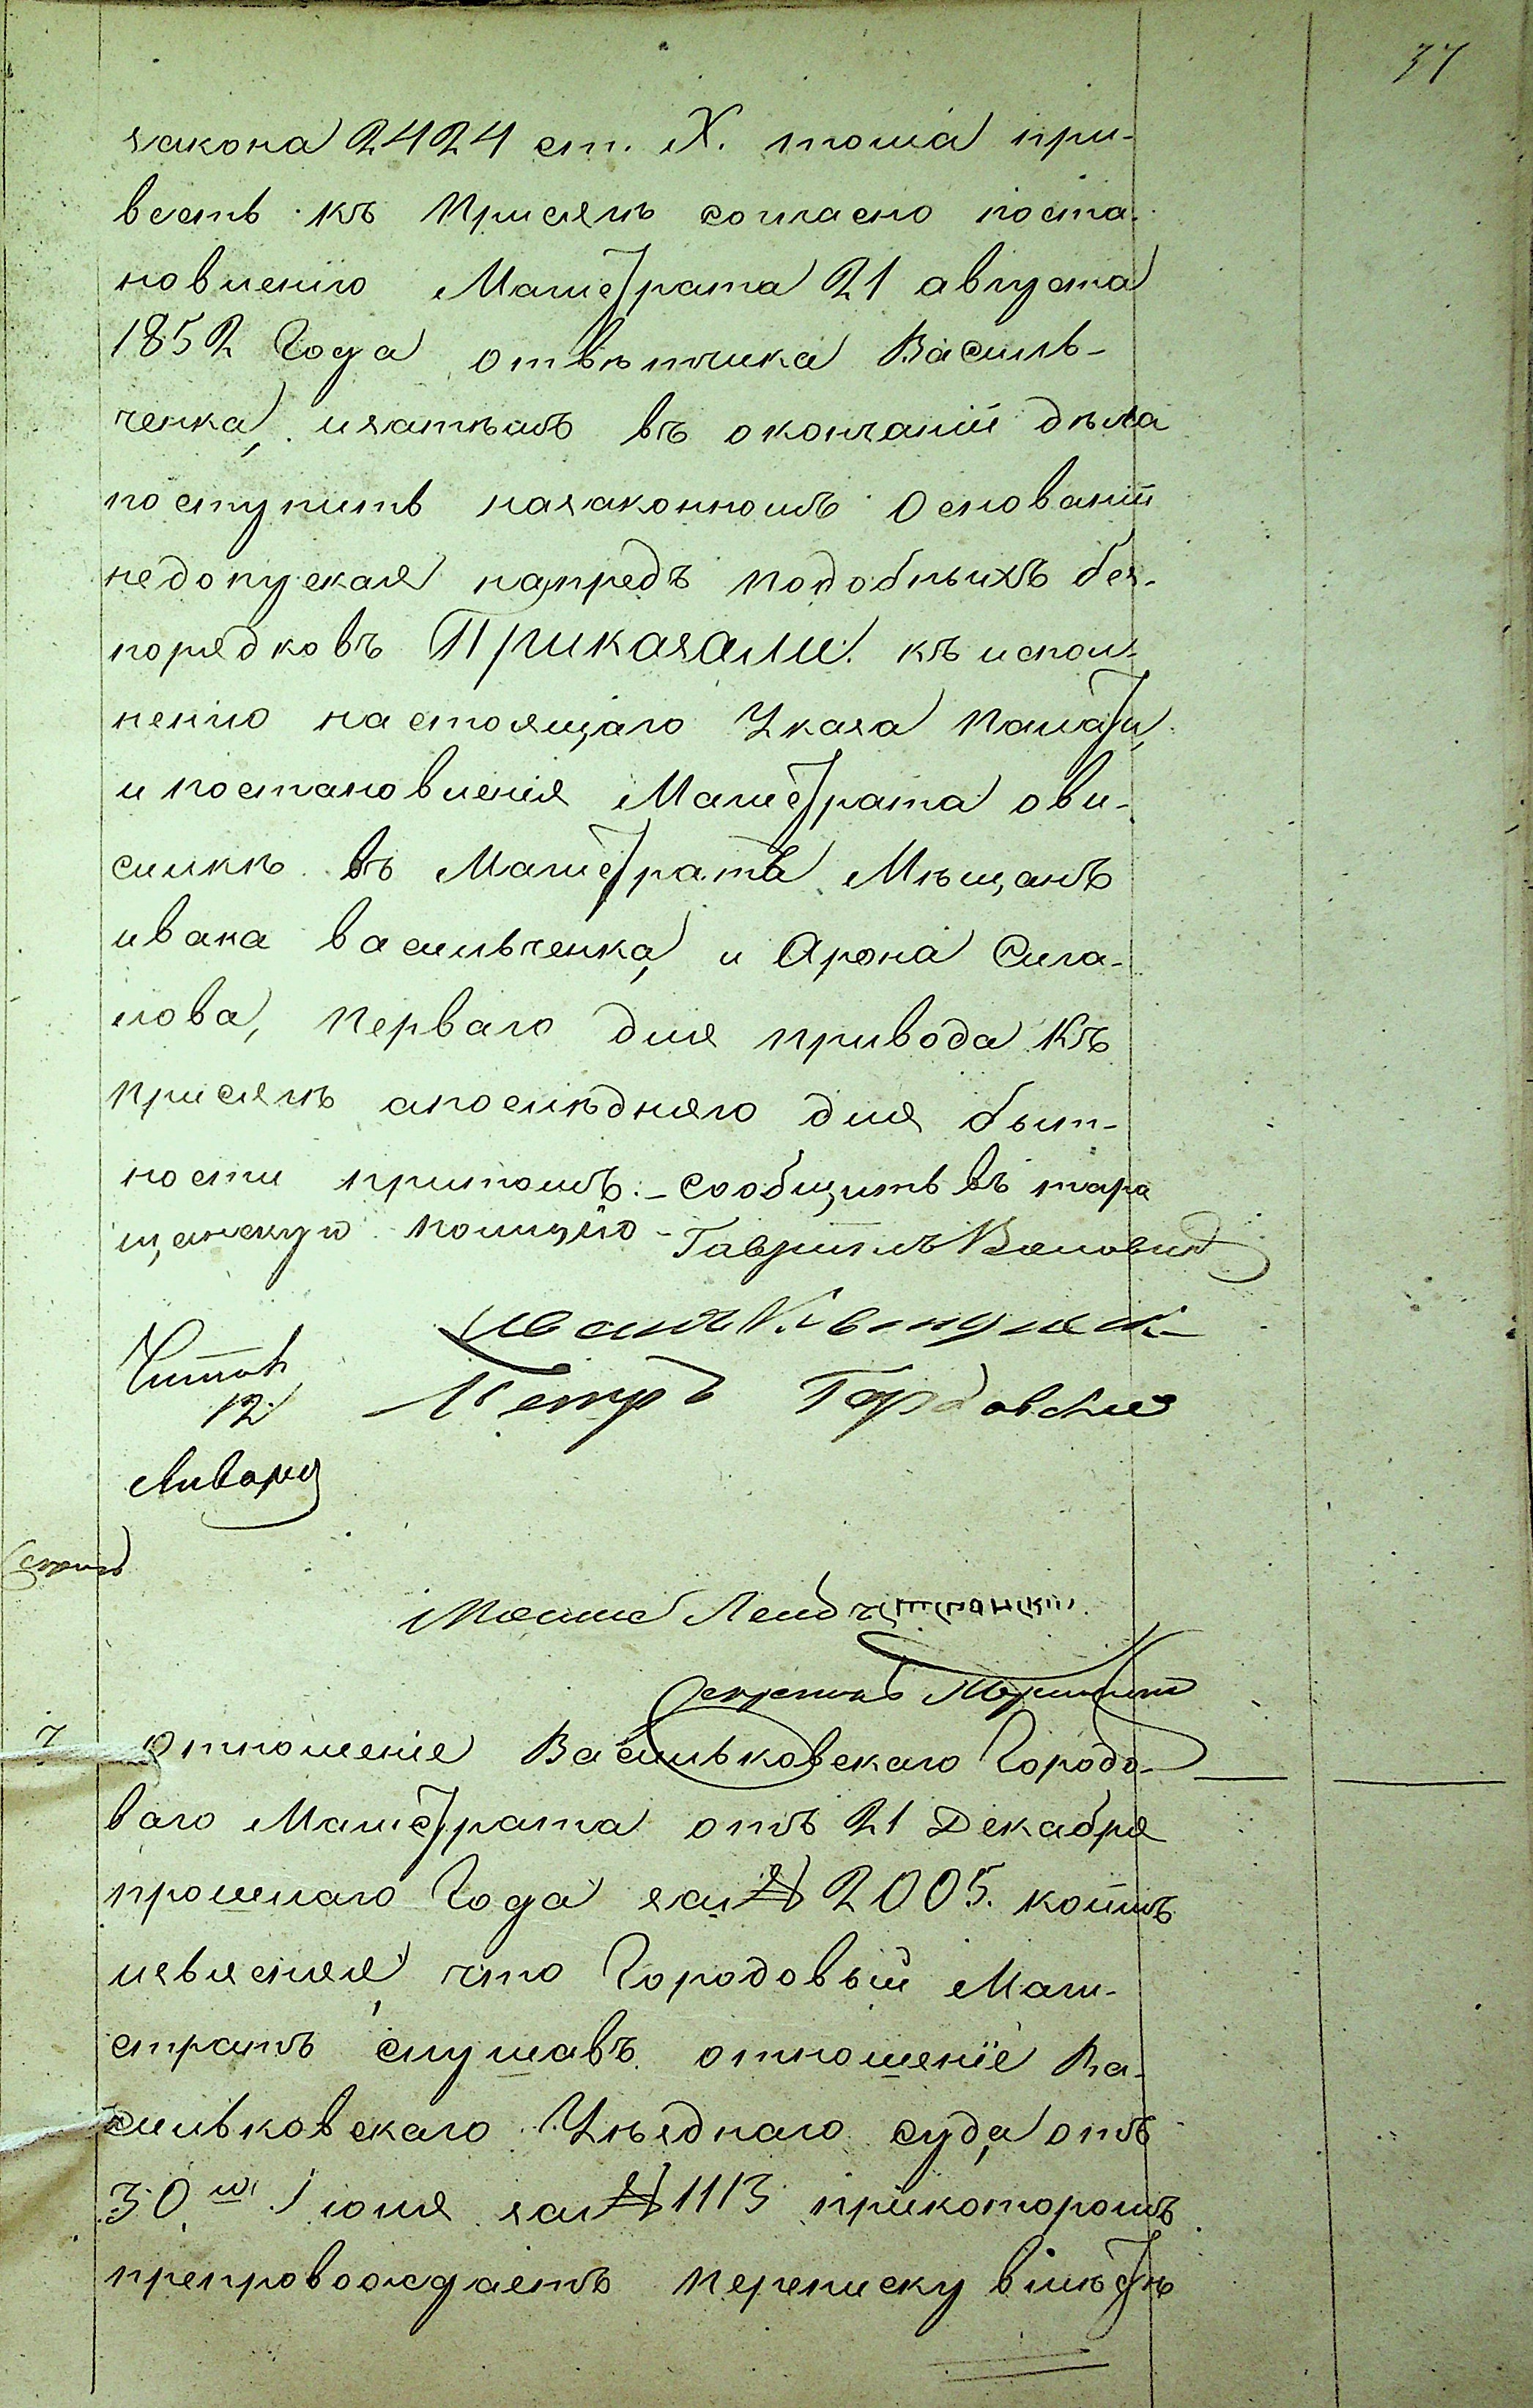 37
закона 2424 ст. X. тома при-
весть къ присягѣ согласно поста-
новленію Магистрата 21 августа
1852 Года отвѣтчика Василь-
ченка, изатѣмъ въ окончаніи дѣла
поступить назаконномъ Основаніи
недопуская напредъ подобныхъ без-
порядковъ Приказали: къ испол-
ненію настоящаго Указа Палаты,
и постановленія Магистрата овы-
сылкѣ въ Магистратъ Мѣщанъ
ивана васильченка, и Арона Сига-
лова, перваго для привода Къ
присягѣ апослѣдняго для быт-
ности притомъ. - сообщить въ тара
щанскую полицію -
Гавріилъ
Петръ
Читалъ
12
Января
Секретарь
7 Отношеніе Васильковскаго Городо-
ваго Магистрата отъ 21 Декабря
прошлаго Года за № 2005. коимъ
изъясняя, что Городовый Маги-
стратъ слушавъ отношеніе Ва-
сильковскаго Уѣзднаго суда отъ
30го Іюня за № 1113 прикоторомъ
препровождаетъ переписку вмѣстѣ